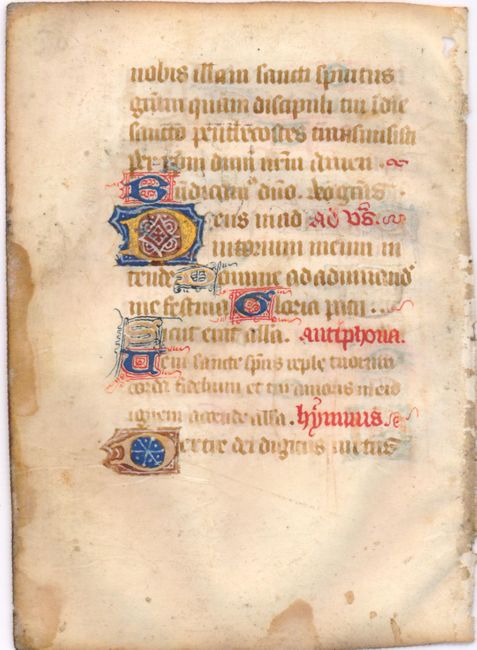 nobis illam sancti spiritus
gram quam discipuli tui i die
sancto penthecostes transmisisti
per xpm dnm nrm amen.
Benedicamus dno. Deo gras.
Deus in ad Ad vs.
iutorium meum in
tende Domine ad adiuuand
me festina Gloria patri.
Sicut erat alla. Antiphona.
Veni sancte spus reple tuorum
corda fidelium et tui amoris in eis
ignem accende alla. hymnus.
Dextre dei digitus